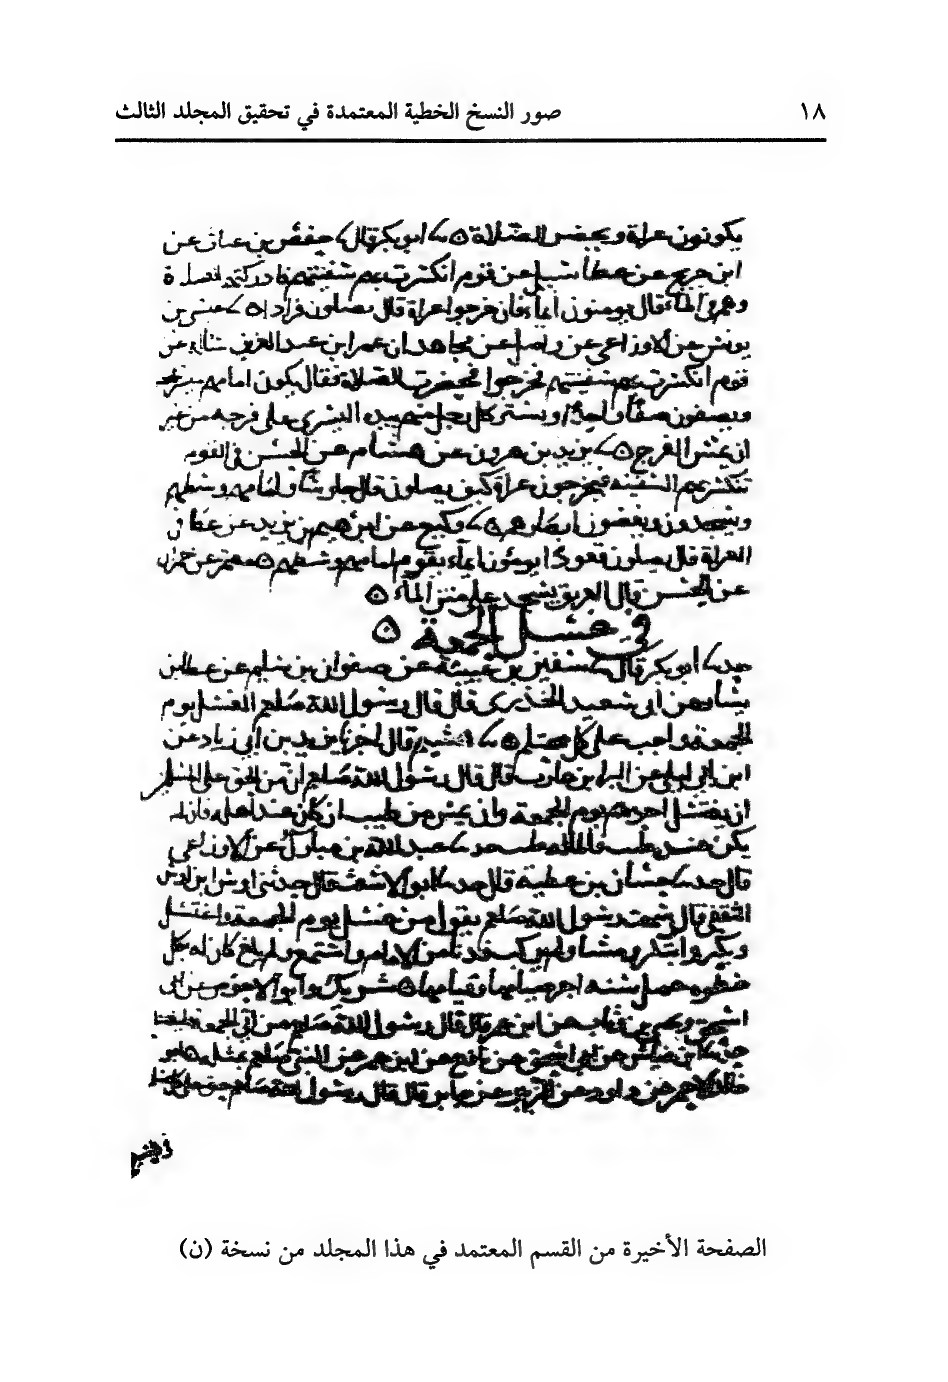 ١٨ صور النسخ الخطية المعتمدة في تحقيق المجلد الثالث
يكونون عراة وتحضر الصلاة ابو بكر قال حفص بن غياث عن
ابن جريج عن عطا سئل عن قوم انكسرت بهم سفينتهم فادركتهم الصلاة
وهم في الماء قال يومئون ايماء فان خرجوا عراة قال يصلون عيسى بن
يونس عن الاوزاعي عن عن مجاهد ان عمر ابن عبد العزيز عن
قوم انكسرت بهم سفينتهم فخرجوا فحضرت الصلاة فقال يكون امامهم
ويصفون صفا واحدا ويستتر كل رجل منهم بيده اليسرى على فرجه من غير
ان يمس الفرج يزيد بن هرون عن هشام عن الحسن في القوم
تنكسر بهم السفينة فيخرجون عراة كيف يصلون قال جلوسا وامامهم وسطهم
ويسجدون ويغضون ابصارهم وكيع عن ابرهيم بن يزيد عن عطا في
العراة قال يصلون قعودا يومئون ايماء يقوم امامهم وسطهم معتمر عن
عن الحسن قال الغريق يسجد على متن الماء
في غسل الجمعة
ابو بكر قال سفين بن عيينة عن صفوان بن سليم عن عطا بن
يسار عن ابي سعيد الخدري قال قال رسول الله صلعم الغسل يوم
الجمعة واجب على كل محتلم هشيم قال اخبرنا يزيد بن ابي زياد عن
ابن ابي ليلى عن البرا بن عازب قال قال رسول الله صلعم ان من الحق على المسلمين
ان يغتسل احدهم يوم الجمعة وان يمس من طيب ان كان عند اهله فان لم
يكن عندهم طيب فالماء عبد الله بن مبارك عن الاوزاعي
قال حسان بن عطية قال ابو الاشعث قال حدثني اوس ابن اوس
الثقفي قال سمعت رسول الله صلعم يقول من غسل يوم الجمعة واغتسل
وبكر وابتكر ومشا ولم يركب فدنا من الامام واستمع ولم يلغ كان له بكل
خطوة عمل سنه اجر صيامها وقيامها شريك وابو الاحوص عن ابي
اسحق عن يحيى بن وثاب عن ابن عمر قال قال رسول الله صلعم من اتى الجمعة
ابن عياش عن ابي اسحق عن نافع عن ابن عمر عن النبي صلعم
خالد الاحمر عن داود عن ابي الزبير عن جابر قال قال رسول الله صلعم حق على كل
الصفحة الأخيرة من القسم المعتمد في هذا المجلد من نسخة (ن)